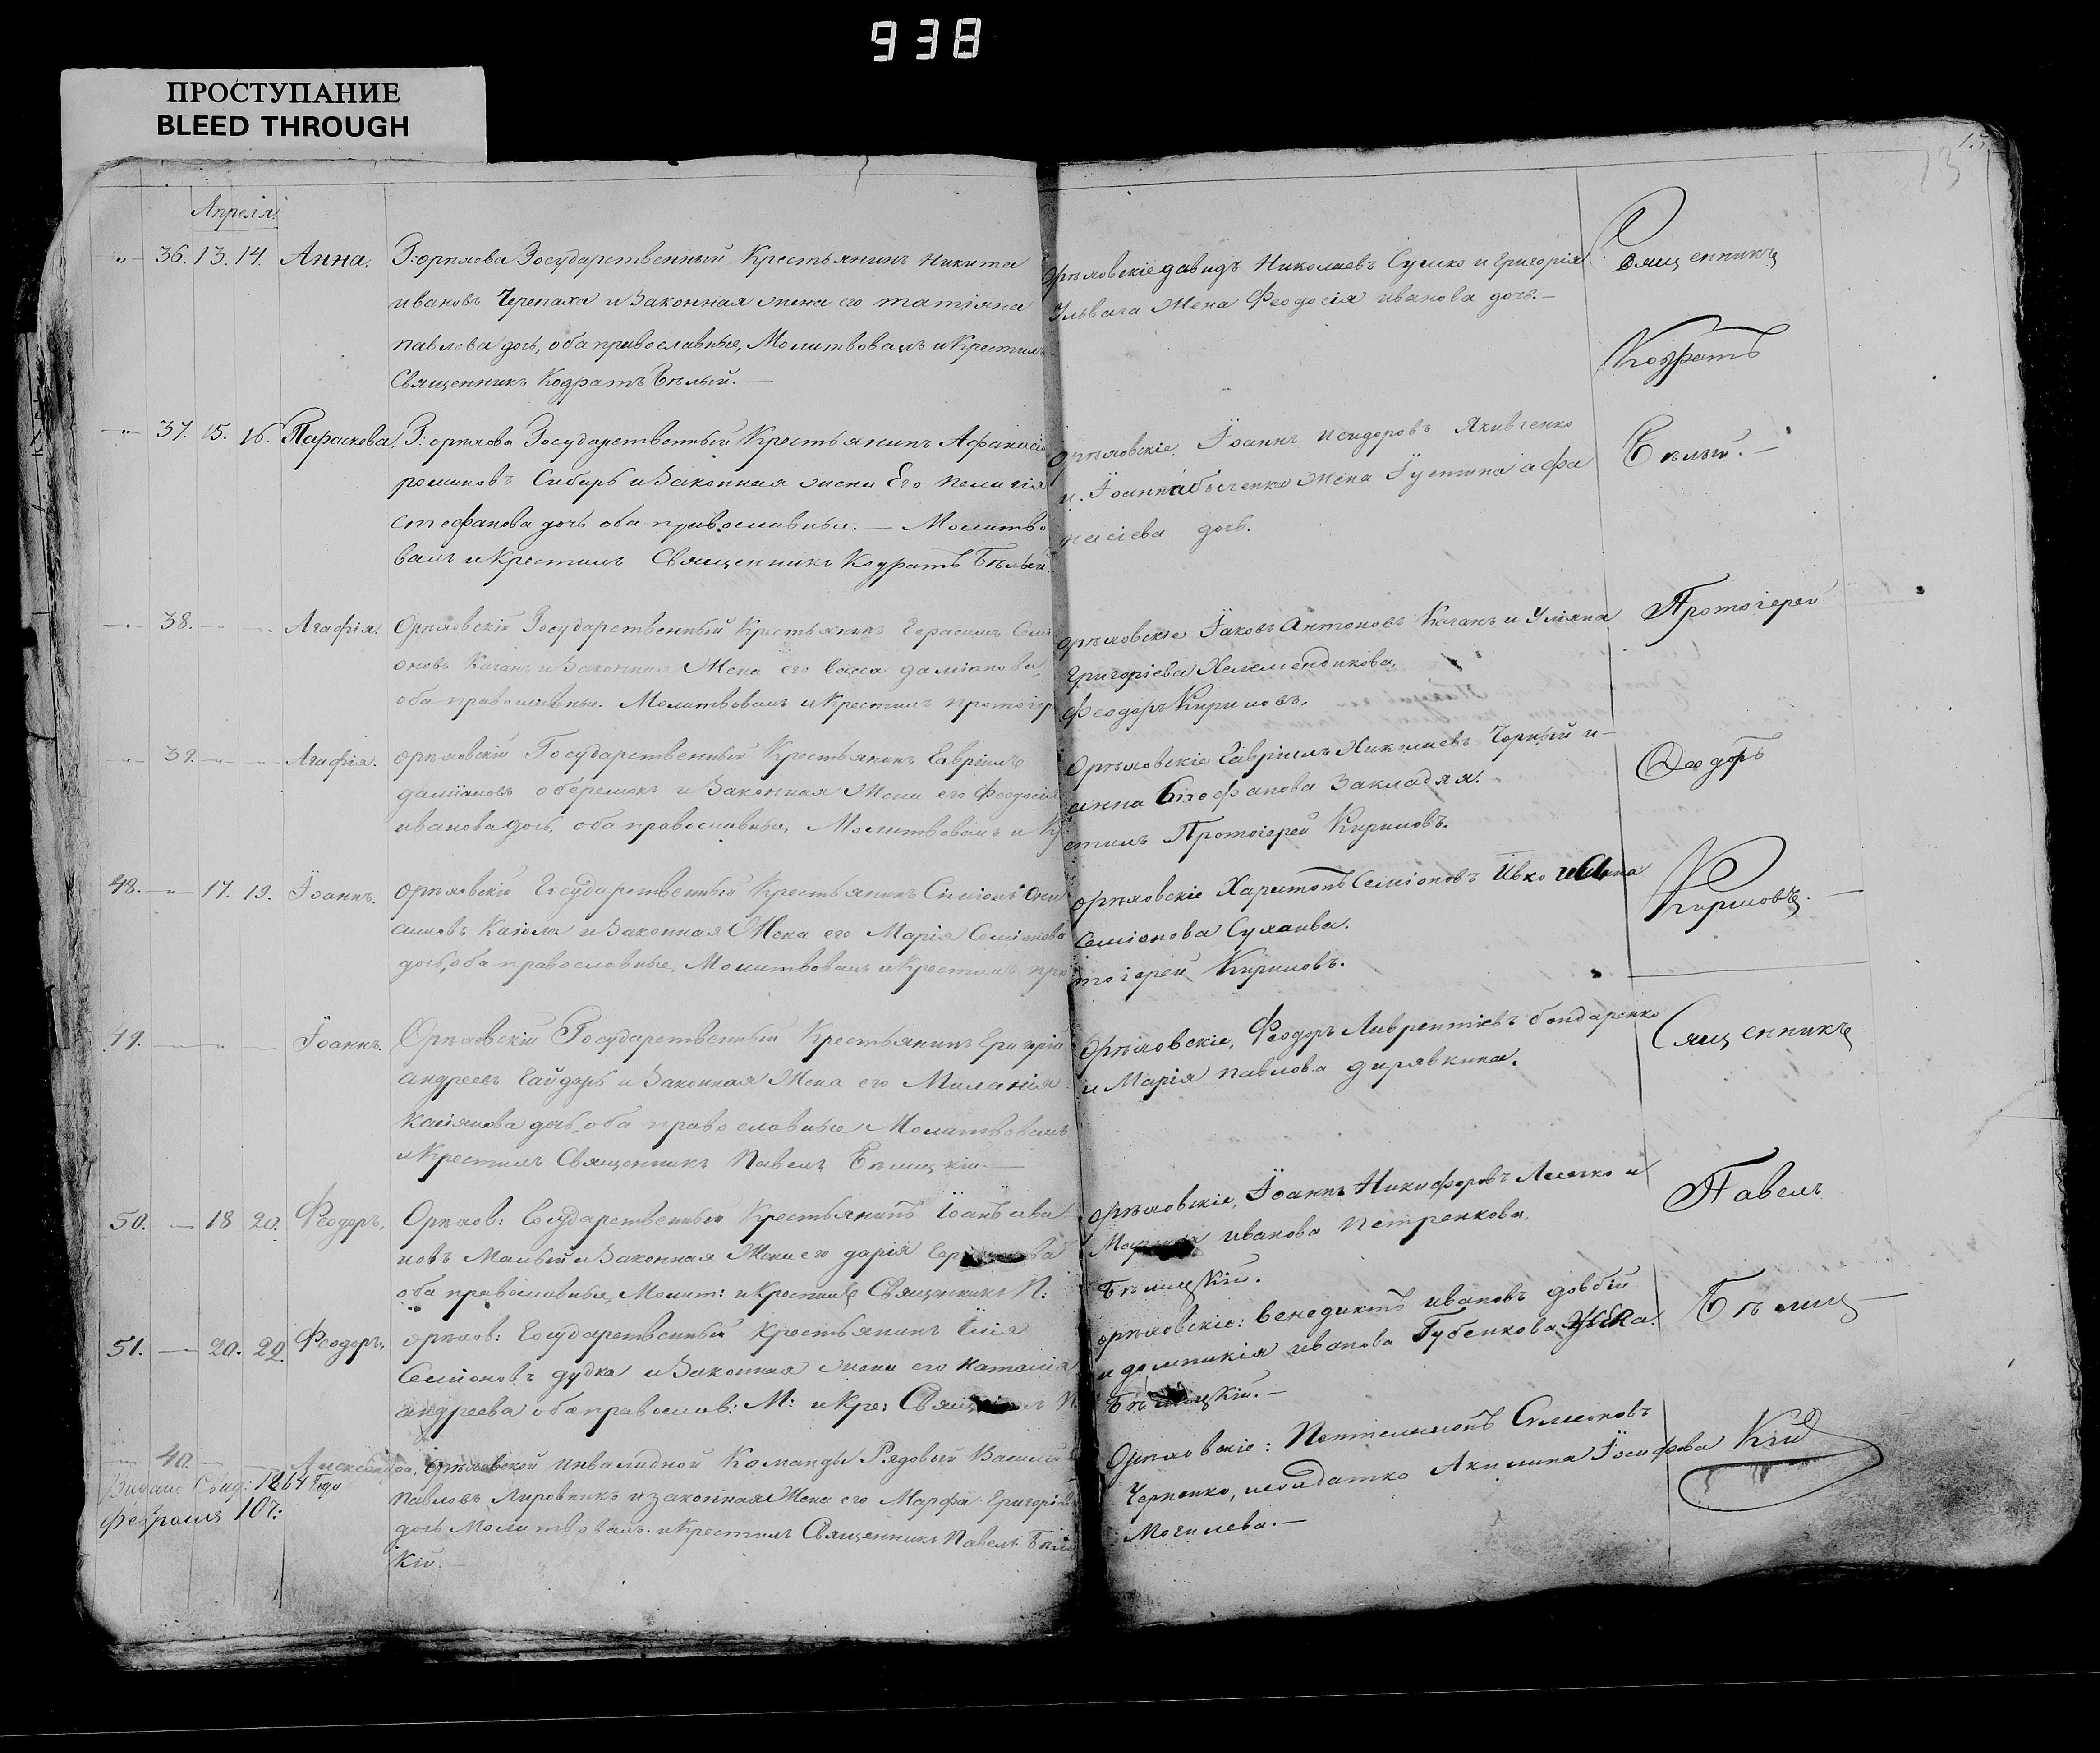 938
ПРОСТУПАНИЕ
BLEED THROUGH
13
Апреля
36. 13. 14. Анна. Г: орѣхова Государственный Крестьянинъ Никита
ивановъ Черепаха и Законная жена его татіяна
павлова дочь, оба православные, Молитвовалъ и Крестилъ
Священникъ Кодратъ Бѣлый. —
Орѣховскіе давидъ Николаевъ Сушко и Григорія
Жена Феодосія иванова дочь. —
Священникъ
Кодратъ
37. 15. 16. Параскева. Г: орѣхова Государственный Крестьянинъ Афанасій
романовъ Сибирь и Законная жена Его пелагія
стефанова дочь оба православные. — Молитво
валъ и Крестилъ Священникъ Кодратъ Бѣлый.
Орѣховскіе, Іоаннъ исидоровъ Якивченко
и. Іоанна Жена Іустина афа
насіева дочь.
Бѣлый. —
38. Агафія. Орѣховскій Государственный Крестьянинъ Герасимъ Семі
оновъ Качан и Законная Жена его васса даміанова,
оба православные. Молитвовалъ и Крестилъ протоіер
орѣховскіе Іаковъ Антоновъ Качанъ и Уліяна
Григоріева
Феодоръ Кириловъ.
Протоіерей
39. Агафія. орѣховскій Государственный Крестьянинъ Гавріилъ
даміановъ оберемокъ и Законная Жена его Феодосія
иванова дочь, оба православные, Молитвовалъ и Кр
Орѣховскіе Гавріилъ Николаевъ Чорный и —
анна Стефанова Закладяя.
стилъ Протоіерей Кириловъ.
Феодоръ
48. 17. 19. Іоаннъ. орѣховскій Государственный Крестьянинъ Симіонъ
симовъ и Законная Жена его Марія Семіонова
дочь, оба православные, Молитвовалъ и Крестилъ про
орѣховскіе Харитонъ Семіоновъ Ивко и Анна
Семіонова
тоіерей Кириловъ.
Кириловъ. —
49. Іоаннъ. Орѣховскій Государственный Крестьянинъ Григорій
андреевъ Гайдарь и Законная Жена его Миланія
Касіянова дочь, оба православные Молитвовалъ
и Крестилъ Священникъ Павелъ Бѣлицкій. —
Орѣховскіе, Феодоръ Лаврентіевъ бондаренко
и Марія павлова дирявкина.
Священникъ
50. — 18 20. Феодоръ, Орѣхов: Государственный Крестьянинъ Іоанъ ива
новъ Малый и Законная Жена его дарія
оба православные, Молит: и Крестилъ Священникъ П:
орѣховскіе, Іоаннъ Никифоровъ и
иванова петренкова,
Бѣлицкій.
Павелъ
51. — 20. 22. Феодоръ, орѣхов: Государственный Крестьянинъ Илія
Семіоновъ дудка и Законная жена его наталія
андреева оба православ: М: и Кре: П:
орѣховскіе: венедиктъ ивановъ довбій
и домникія иванова Губенкова
Бѣлицкій. —
Бѣлиц —
40. Александра, Орѣховской инвалидной Команды Рядовый Василій
павловъ Лировникъ и законная Жена его Марфа Григоріев
дочь Молитвовалъ и Крестилъ Священникъ Павелъ Бѣлиц
кій. —
Видано Свид: 1864 Года
Февраля 10г:
Орѣховскіе: Пантелимонъ Симіоновъ
Черненко, Акилина Іосифова
Могилева. —
Кій